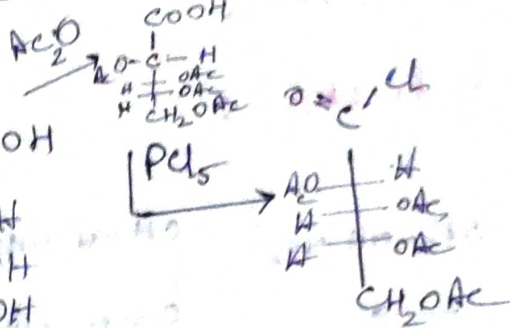 Ac2O
COOH
AcO-C-H
H OAc
H OAc
CH2OAc
OH
PCl5
O=C/Cl
AcO H
H OAc
H OAc
CH2OAc
H
H
OH